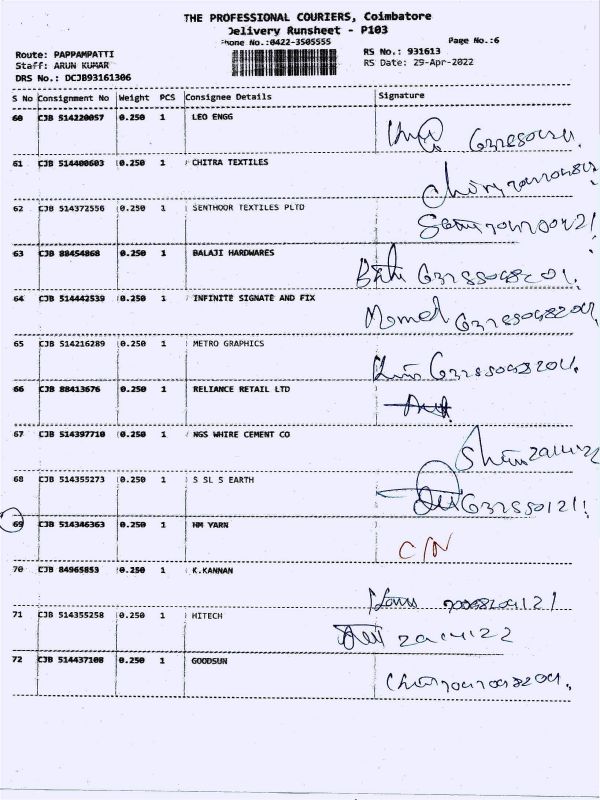 THE PROFESSIONAL COURIERS, Coimbatore
Delivery Runsheet - P103
Phone No.:0422-3505555 Page No.:6
Route: PAPPAMPATTI RS No.: 931613
Staff: ARUN KUMAR RS Date: 29-Apr-2022
DRS No.: DCJB93161306
S No Consignment No Weight PCS Consignee Details Signature
60 CJB 514220057 0.250 1 LEO ENGG
61 CJB 514400603 0.250 1 CHITRA TEXTILES
62 CJB 514372556 0.250 1 SENTHOOR TEXTILES PLTD
63 CJB 88454868 0.250 1 BALAJI HARDWARES
64 CJB 514442539 0.250 1 INFINITE SIGNATE AND FIX
65 CJB 514216289 0.250 1 METRO GRAPHICS
66 CJB 88413676 0.250 1 RELIANCE RETAIL LTD
67 CJB 514397710 0.250 1 NGS WHIRE CEMENT CO
68 CJB 514355273 0.250 1 S SL S EARTH
69 CJB 514346363 0.250 1 HM YARN
C/N
70 CJB 84965853 0.250 1 K.KANNAN
71 CJB 514355258 0.250 1 HITECH
72 CJB 514437108 0.250 1 GOODSUN